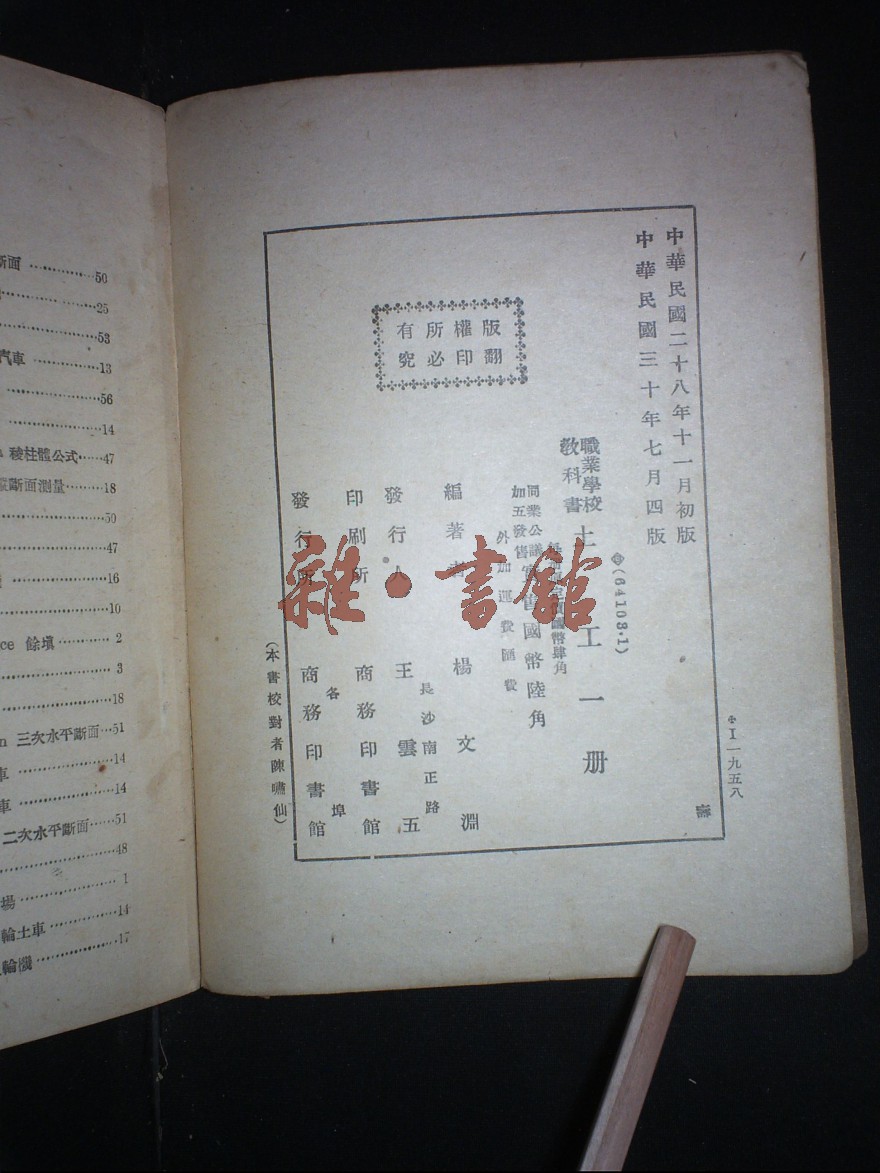 中華民國二十八年十一月初版
中華民國三十年七月四版
(64103·1)
職業學校
教科書
土工一冊
國幣肆角
同業公議實售國幣陸角
加五發售
外加運費匯費
編著者 楊文淵
長沙南正路
發行人 王雲五
印刷所 商務印書館
各埠
發行所 商務印書館
(本書校對者陳嘯仙)
版權所有
翻印必究
I一九五八
雜·書館
斷面 50
25
53
汽車 13
56
14
稜柱體公式 47
斷面測量 18
50
47
16
10
ce 餘填 2
3
18
n 三次水平斷面 51
車 14
車 14
二次水平斷面 51
48
場 1
輪土車 14
輪機 17